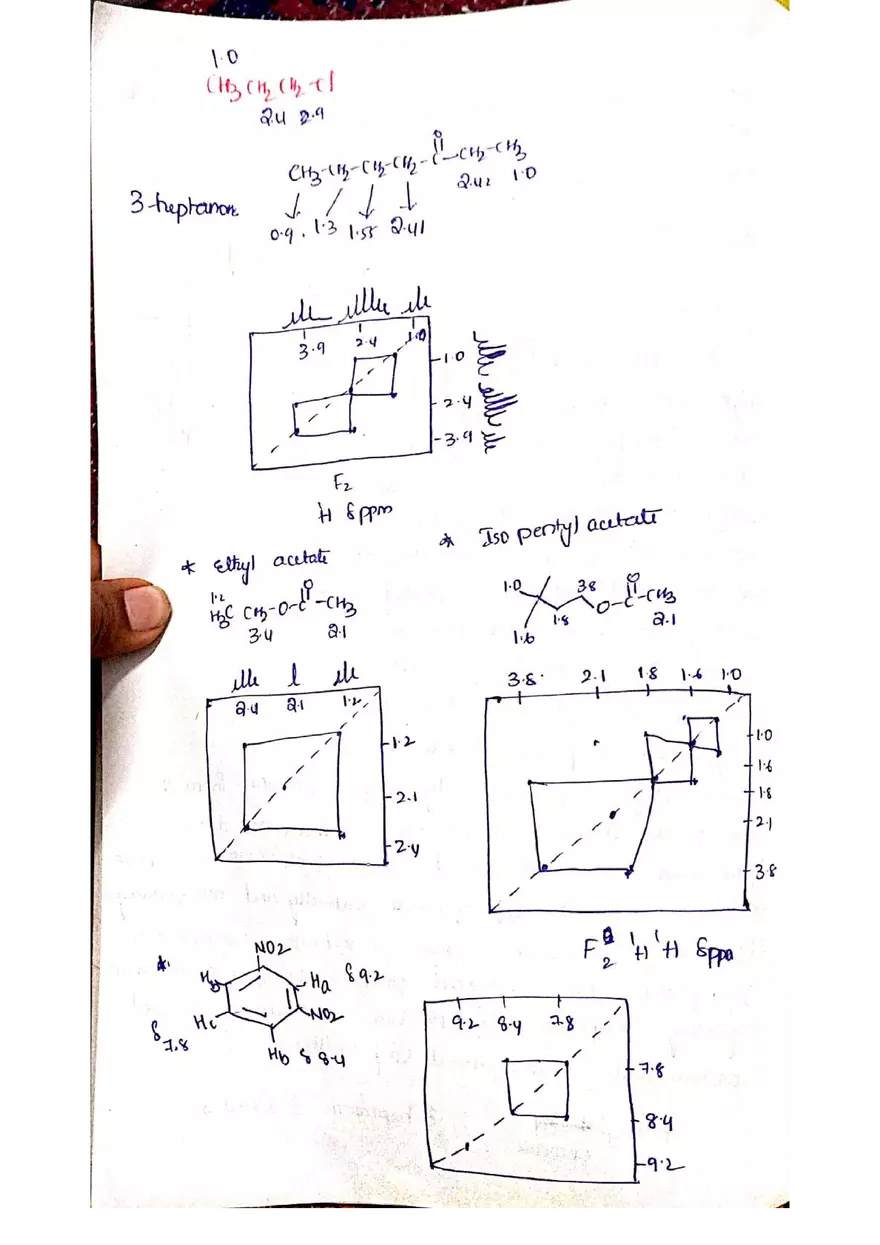 1.0
CH3 CH2 CH2-Cl
2.4 2.9
O
CH3-CH2-CH2-CH2-C-CH2-CH3
2.42 1.0
3-heptanone
0.9, 1.3 1.55 2.41
3.9 2.4 1.0
1.0
2.4
3.9
F2
H δ ppm
* Ethyl acetate
* Iso pentyl acetate
1.2 O
H3C CH2-O-C-CH3
3.4 2.1
1.0 3.8 O
O-C-CH3
1.8 2.1
1.6
2.4 2.1 1.2
1.2
2.1
2.4
3.8 2.1 1.8 1.6 1.0
1.0
1.6
1.8
2.1
3.8
F2 1H 1H δppm
*
NO2
Hb Ha δ 9.2
Hc NO2
δ 7.8
Hb δ 8.4
9.2 8.4 7.8
7.8
8.4
9.2